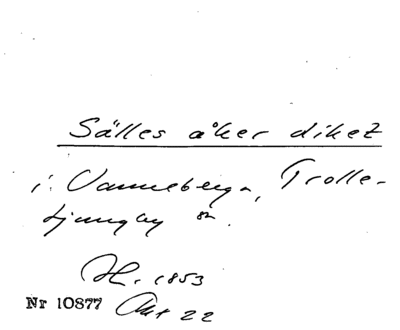 Sälles åker diket
i. Vanneberga, Trolle-
Ljungby sn.
H. 1853
Nr 10877 Akt 22